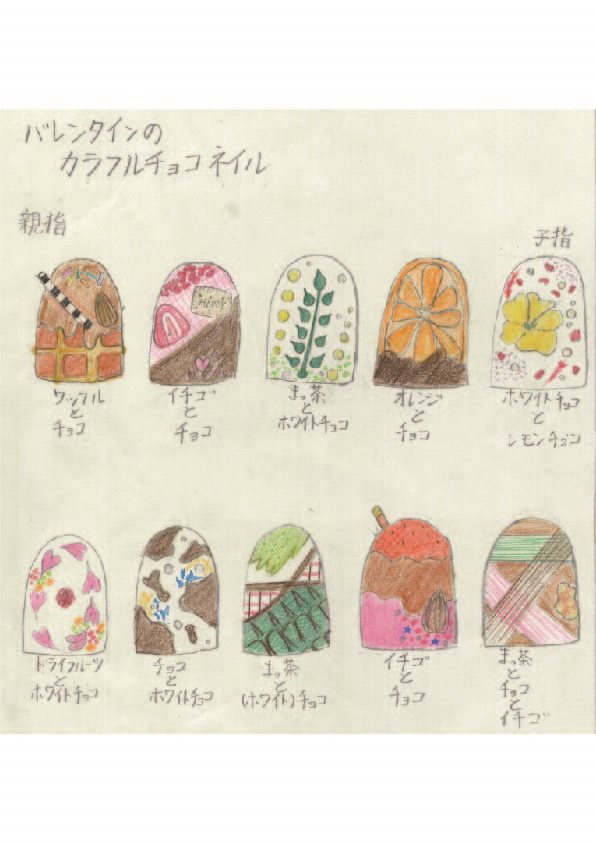 バレンタインの
カラフルチョコネイル
親指
子指
ワッフル
と
チョコ
イチゴ
と
チョコ
まっ茶
と
ホワイトチョコ
オレンジ
と
チョコ
ホワイトチョコ
と
レモンチョコ
ドライフルーツ
と
ホワイトチョコ
チョコ
と
ホワイトチョコ
まっ茶
と
(ホワイト)チョコ
イチゴ
と
チョコ
まっ茶
と
チョコ
と
イチゴ